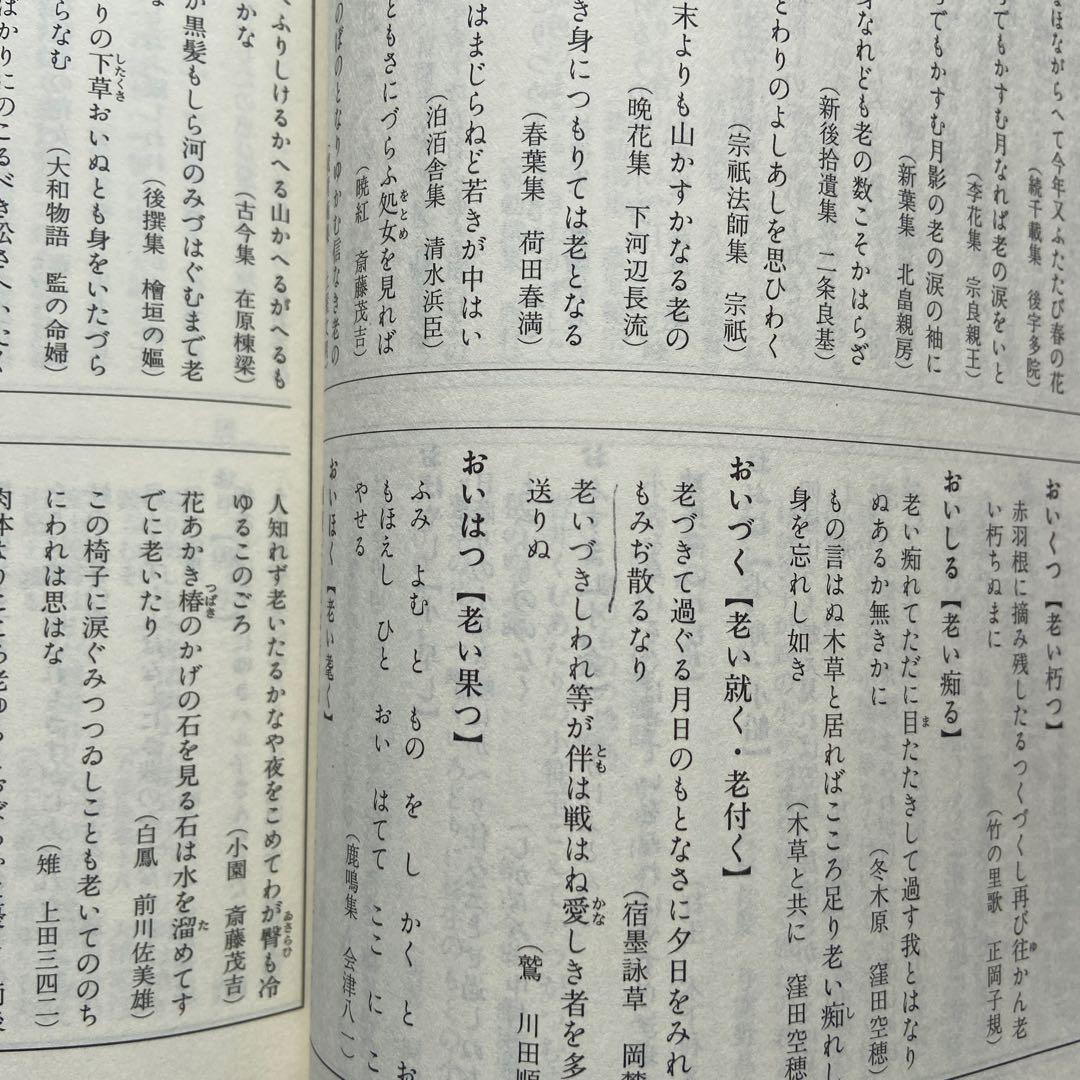 ほながらへて今年又ふたたび春の花
（続千載集　後宇多院）
てもかすむ月なれば老の涙をいと
（李花集　宗良親王）
てもかすむ月影の老の涙の袖に
（新葉集　北畠親房）
身なれども老の数こそかはらざ
（新後拾遺集　二条良基）
とわりのよしあしを思ひわく
（宗祇法師集　宗祇）
末よりも山かすかなる老の
（晩花集　下河辺長流）
き身につもりては老となる
（春葉集　荷田春満）
はまじらねど若きが中はい
（泊洦舎集　清水浜臣）
ともさにづらふ処女を見れば
をとめ
（暁紅　斎藤茂吉）
のばのとなりゆかむ信なき老の
おいくつ【老い朽つ】
赤羽根に摘み残したるつくづくし再び往かん老
ゆ
い朽ちぬまに
（竹の里歌　正岡子規）
おいしる【老い痴る】
老い痴れてただに目たたきして過す我とはなり
ま
ぬあるか無きかに
（冬木原　窪田空穂）
もの言はぬ木草と居ればこころ足り老い痴れし
し
身を忘れし如き
（木草と共に　窪田空穂
おいづく【老い就く・老付く】
老づきて過ぐる月日のもとなさに夕日をみれ
もみぢ散るなり
（宿墨詠草　岡
老いづきしわれ等が伴は戦はね愛しき者を多
とも
かな
送りぬ
（鷲　川田順
おいはつ【老い果つ】
ふみ　よむ　と　もの　を　し　かく　と　お
もほえし　ひと　おい　はてて　ここ　に　こ
やせる
（鹿鳴集　会津八一）
おいほく【老い耄く】
ふりしけるかへる山かへるがへるも
かな
（古今集　在原棟梁）
が黒髪もしら河のみづはぐむまで老
（後撰集　檜垣の嫗）
りの下草おいぬとも身をいたづら
したくさ
らなむ
（大和物語　監の命婦）
ばかりにのこるべき松さへ
人知れず老いたるかなや夜をこめてわが臀も冷
ゐさらひ
ゆるこのごろ
（小園　斎藤茂吉）
花あかき椿のかげの石を見る石は水を溜めてす
つばき
た
でに老いたり
（白鳳　前川佐美雄）
この椅子に涙ぐみつつゐしことも老いてののち
にわれは思はな
（雉　上田三四二）